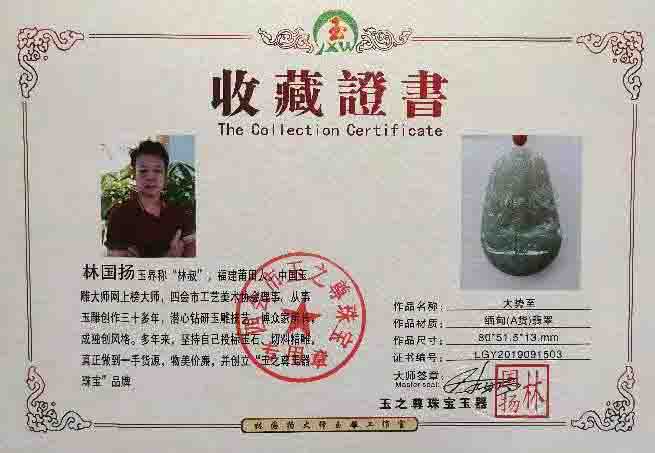 玉
JXW
收藏證書
The Collection Certificate
林国扬 玉界称“林叔”，福建莆田人，中国玉
雕大师网上榜大师，四会市工艺美术协会理事，从事
玉雕创作三十多年，潜心钻研玉雕技艺，博众家所长，
成独创风格。多年来，坚持自己投标玉石、切料精雕，
真正做到一手货源，物美价廉，并创立“玉之尊玉器
珠宝”品牌
作品名称：大势至
作品材质：缅甸(A货)翡翠
作品规格：80*51.5*13.mm
证书编号：LGY2019091503
大师签章：
Master seal:
林国扬
玉之尊珠宝玉器
林国扬大师玉雕工作室